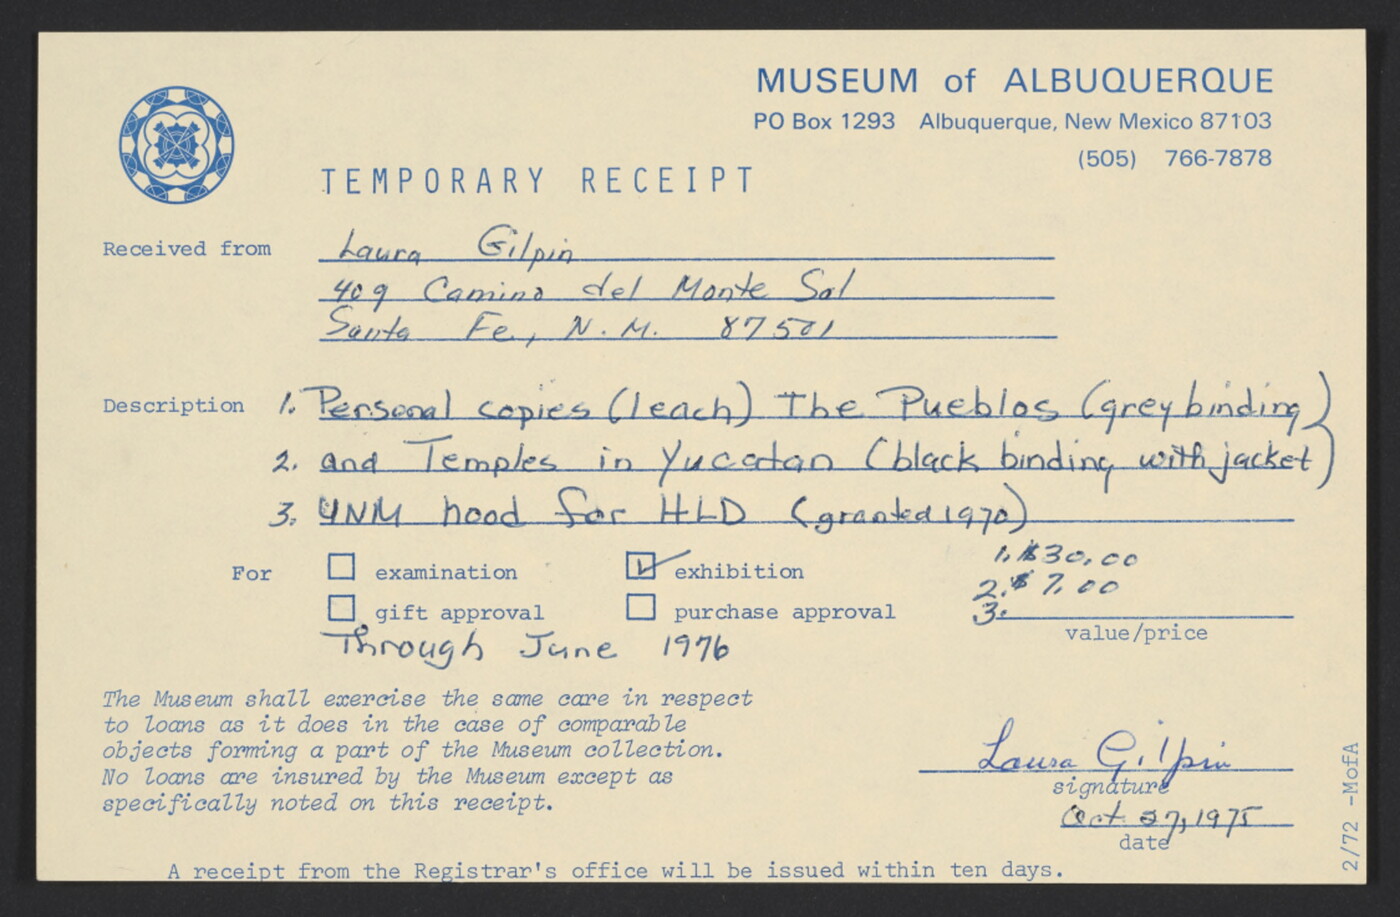 MUSEUM of ALBUQUERQUE
PO Box 1293 Albuquerque, New Mexico 87103
(505) 766-7878
TEMPORARY RECEIPT
Received from Laura Gilpin
409 Camino del Monte Sol
Santa Fe, N.M. 87501
Description 1. Personal copies (1 each) The Pueblos (grey binding)
2. and Temples in Yucatan (black binding with jacket)
3. UNM hood for HLD (granted 1970)
For examination exhibition
gift approval purchase approval
1. $30.00
2. $7.00
3.
value/price
Through June 1976
The Museum shall exercise the same care in respect
to loans as it does in the case of comparable
objects forming a part of the Museum collection.
No loans are insured by the Museum except as
specifically noted on this receipt.
Laura Gilpin
signature
Oct. 27, 1975
date
A receipt from the Registrar's office will be issued within ten days.
2/72 -MofA